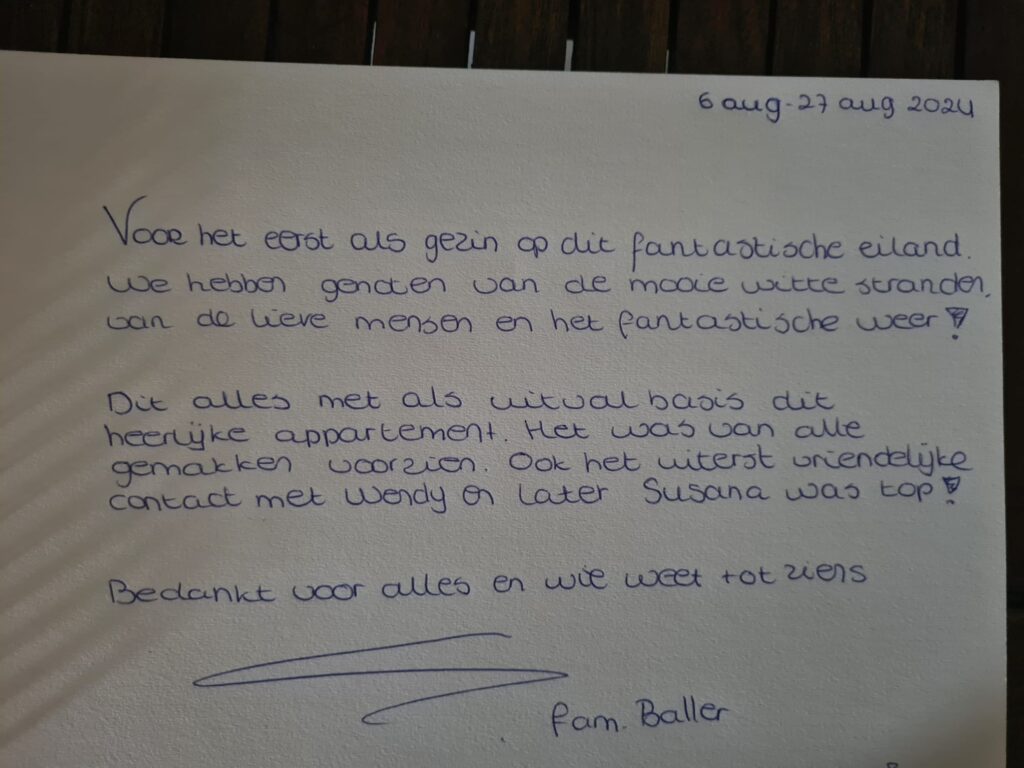 6 aug - 27 aug 2024
Voor het eerst als gezin op dit fantastische eiland.
We hebben genoten van de mooie witte stranden,
van de lieve mensen en het fantastische weer!
Dit alles met als uitvalbasis dit
heerlijke appartement. Het was van alle
gemakken voorzien. Ook het uiterst vriendelijke
contact met Wendy en later Susana was top!
Bedankt voor alles en wie weet tot ziens
fam. Baller